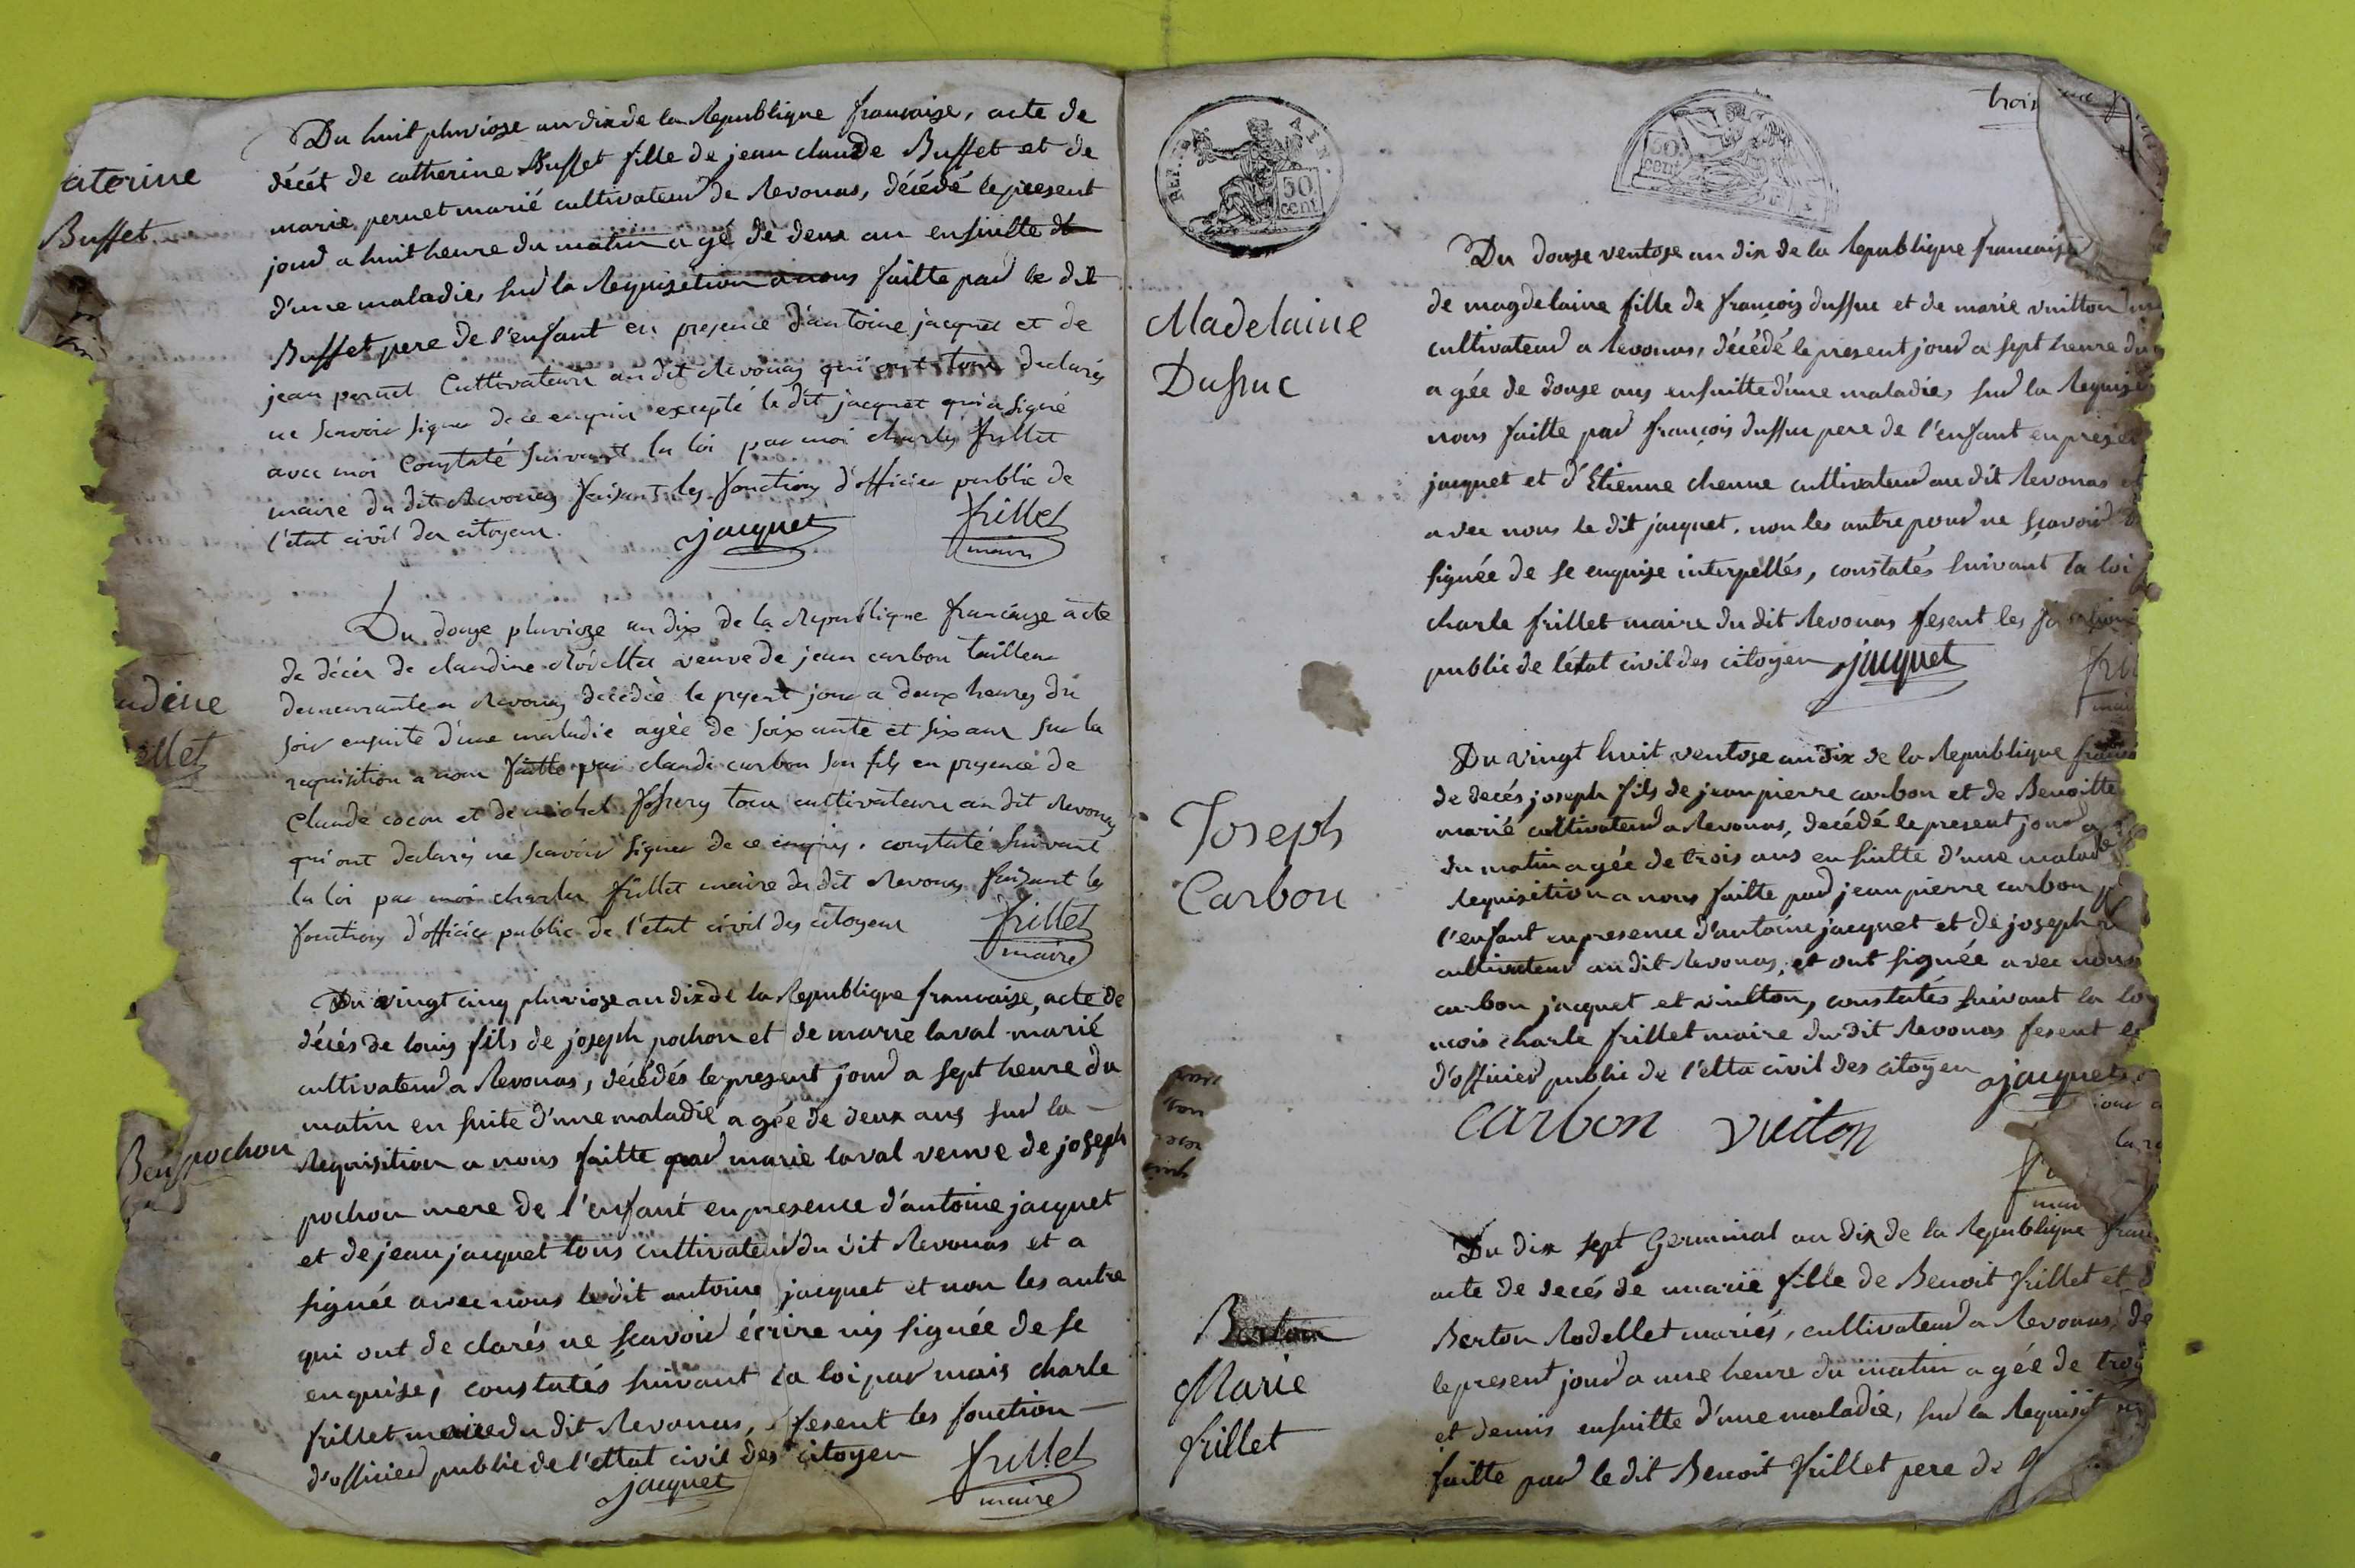 aterine
Buffet
Du huit pluviose an dix de la Republique francaise, acte de
décét de catherine Buffet fille de jean claude Buffet et de
marie pernet marié cultivateur de Revonas, décédé le present
jour a huit heure du matin a gé de deux an ensuitte
d'une maladie, sur la Requisition a nous faitte par le dit
Buffet pere de l'enfant en presence d'antoine jacquet et de
jean pernet Cultivateurs au dit Revonas qui ont tous declarés
ne scavoir signer de ce enquis excepté le dit jacquet qui a signé
avec moi Constaté suivant la loi par moi charles frillet
maire du dit Revonas faisant les fonctions d'officier public de
l'état civil des citoyens.
jacquet
frillet
maire
udine
ellet
Du douze pluvioze an dix de la Republique francaise acte
de décès de claudine veuve de jean carbon tailleur
demeurante a Revonas decedée le present jour a deux heures du
soir ensuite d'une maladie agée de soixante et six ans sur la
requisition a nous faitte par claude carbon son fils en presence de
Claude cocon et de michel tous cultivateurs au dit Revonas
qui ont declarés ne scavoir signer de ce enquis. constaté suivant
la loi par moi charles frillet maire du dit Revonas faisant les
fonctions d'officier public de l'état civil des citoyens
frillet
maire
pochon
Du vingt cinq pluviose an dix de la Republique francaise, acte de
décés de louis fils de joseph pochon et de marie laval marié
cultivateur a Revonas, décédés le present jour a sept heure du
matin en suite d'une maladie a gée de deux ans sur la
Requisition a nous faitte par marie laval veuve de joseph
pochon mere de l'enfant en presence d'antoine jacquet
et de jean jacquet tous cultivateur du dit Revonas et a
signée avec nous le dit antoine jacquet et non les autre
qui ont de clarés ne scavoir écrire ny signée de se
enquise, constatés suivant la loi par mois charle
frillet maire du dit Revonas, fesent les fonction
d'officier public de l'ettat civil des citoyen
jacquet
frillet
maire
50
cent
50
cent
trois
Madelaine
Dussuc
Du douze ventose an dix de la Republique francaise
de magdelaine fille de françois dussuc et de marie vuitton
cultivateur a Revonas, décédé le present jour a sept heure du
a gée de douze ans ensuitte d'une maladie, sur la Requisi
nous faitte par françois dussuc pere de l'enfant en prese
jacquet et d'Etienne chenne cultivateur au dit Revonas et
avec nous le dit jacquet. non les autre pour ne scavoir
signée de se enquise interpellés, constatés suivant la loi
charle frillet maire du dit Revonas fesent les
public de l'état civil des citoyen
jacquet
fri
mai
Joseph
Carbon
Du vingt huit ventose an dix de la Republique franc
de decés joseph fils de jean pierre carbon et de Benoitte
marié cultivateur a Revonas, decédé le present jour a
du matin a gée de trois ans en suitte d'une malad
Requisition a nous faitte par jean pierre carbon
l'enfant en presence d'antoine jacquet et de joseph
cultivateur au dit Revonas, et ont signée avec nous
carbon jacquet et vuitton, constatés suivant la lo
mois charle frillet maire du dit Revonas fesent le
d'officier public de l'etta civil des citoyen
jacquet
carbon vuiton
Marie
frillet
Du dix sept Germinal an dix de la Republique franc
acte de decés de marie fille de Benoit frillet et d
Berton Rodellet mariés, cultivateur a Revonas, de
le present jour a une heure du matin a gée de troy
et demis ensuitte d'une maladie, sur la Requisit
faitte par le dit Benoit frillet pere de